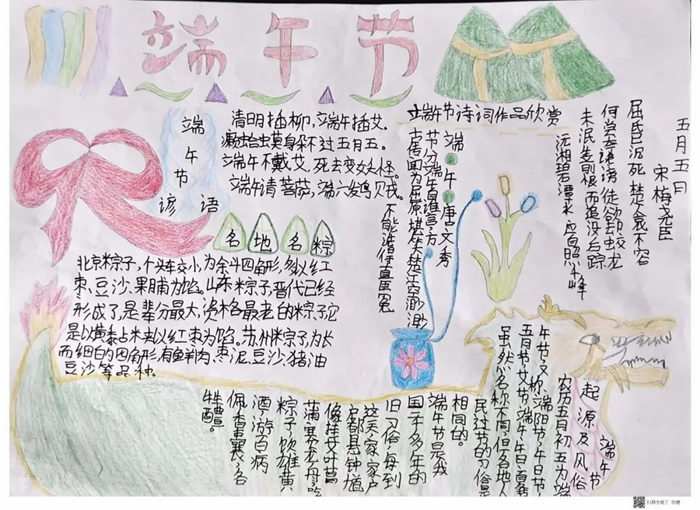 端午节
端午节谚语
清明插柳,端午插艾。
端午不戴艾,死去变妖怪。
名地名粽
北京粽子,个头较小,为斜四角形,多以红
枣、豆沙、果脯为馅。山东粽子,晋代已经
形成了,是辈分最大,资格最老的粽子,它
是以黄黍米夹以红枣为馅。苏州粽子,为长
而细白的四角形,有鲜肉、枣泥、豆沙、猪油
豆沙等品种。
端午节诗词作品欣赏
端午唐文秀
节分端午自谁言,万
古传闻为屈原。堪笑楚江空渺渺,
不能洗得直臣冤。
五月五日
宋梅尧臣
屈氏已沉死,楚人哀不容。
何尝奈谗谤,徒欲却蛟龙。
未泯生前恨,而追没后踪。
沅湘碧潭水,应自照千峰。
端午节
起源及风俗
农历五月初五为端
午节,又称端阳节、午日节、
五月节、艾节、端午、
虽然名称不同,但各地人
民过节的习俗是
相同的。
端午节是我
国二千多年的
旧习俗,每到
这天,家家户
户都悬钟馗
像,挂艾叶
菖蒲,赛龙舟,吃
粽子,饮雄黄
酒,游百病,
佩香囊,备
牲醴。
扫描全能王 创建